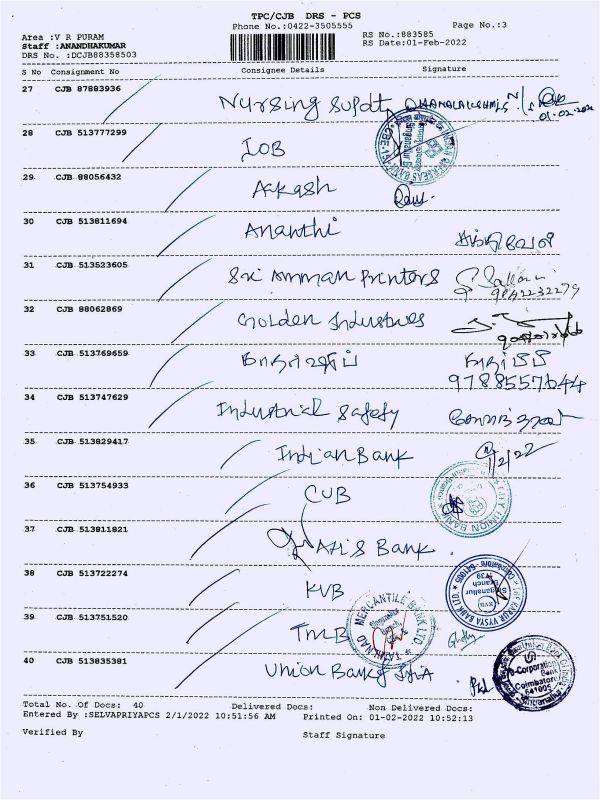 TPC/CJB DRS - PCS
Phone No.:0422-3505555 Page No.:3
Area :V R PURAM RS No.:883585
Staff :ANANDHAKUMAR RS Date:01-Feb-2022
DRS No. :DCJB88358503
S No Consignment No Consignee Details Signature
27 CJB 87883936 Nursing Supdt
01-02-202
28 CJB 513777299 IOB
29 CJB 88056432 Aakash
30 CJB 513811694 Ananthi
31 CJB 513523605 Sri Amman Printers
9842232279
32 CJB 88062869 Golden Industries
33 CJB 513769659
9788557644
34 CJB 513747629 Industrial Safety
35 CJB 513829417 Indian Bank 1/2/22
36 CJB 513754933 CUB
CITY UNION BANK
37 CJB 513811821 Axis Bank
38 CJB 513722274 KVB
THE KARUR VYSYA BANK LTD
Singanallur Branch
Coimbatore - 641005
39 CJB 513751520 TMB
TAMILNAD MERCANTILE BANK LTD.
40 CJB 513835381 Union Bank of India
e-Corporation Bank
Coimbatore
641005
Singanallur
Total No. Of Docs: 40 Delivered Docs: Non Delivered Docs:
Entered By :SELVAPRIYAPCS 2/1/2022 10:51:56 AM Printed On: 01-02-2022 10:52:13
Verified By Staff Signature